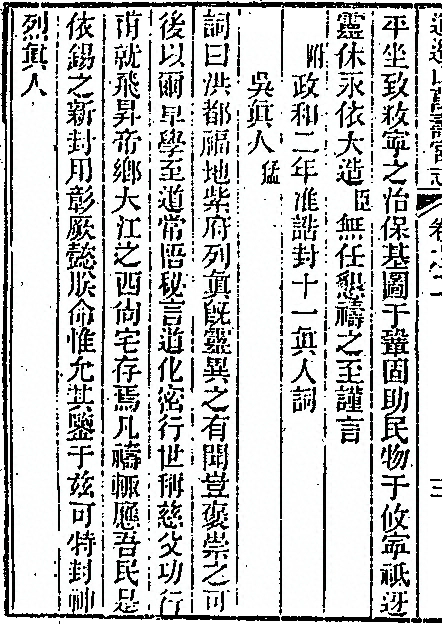 逍遙山萬壽宮志 卷之 三
平坐致救寧之治保基圖于鞏固助民物于攸寧祇迓
靈休永依大造臣無任懇禱之至謹言
附政和二年准誥封十一眞人詞
吳眞人猛
詞曰洪都福地紫府列眞旣靈異之有聞豈褒崇之可
後以爾早學至道常悟秘言道化密行世稱慈父功行
甫就飛昇帝鄉大江之西尙宅存焉凡禱輒應吾民是
依錫之新封用彰厥懿朕命惟允其鑒于兹可特封神
烈眞人